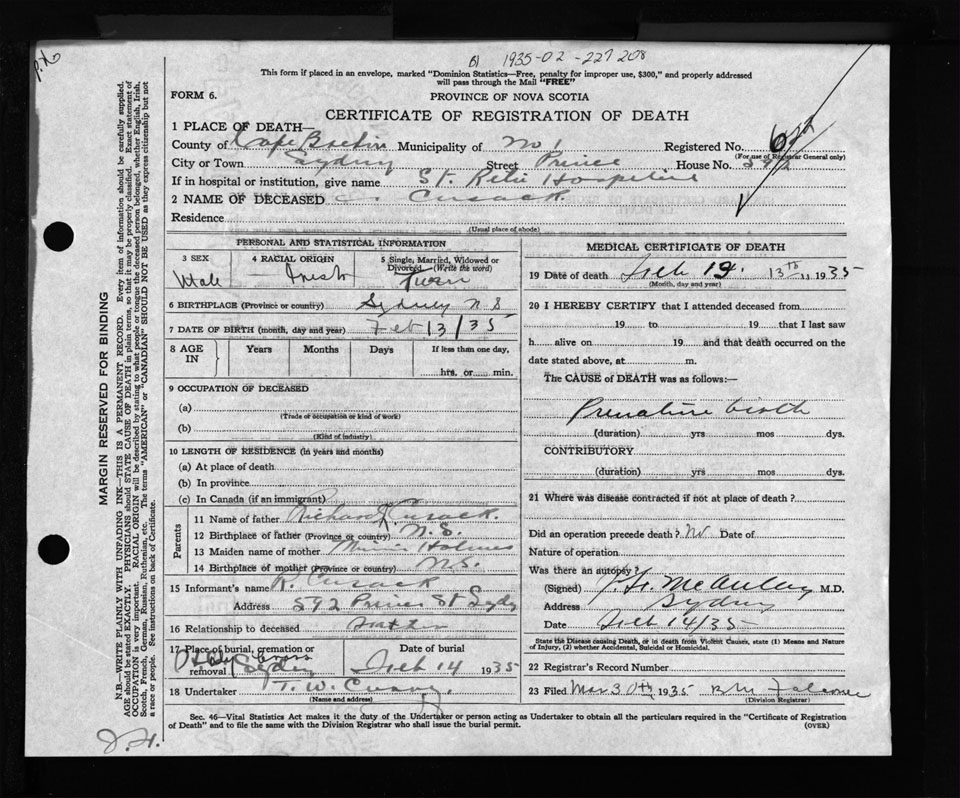 1935-02-227208
This form if placed in an envelope, marked "Dominion Statistics—Free, penalty for improper use, $300," and properly addressed
will pass through the Mail "FREE"
FORM 6.
PROVINCE OF NOVA SCOTIA
CERTIFICATE OF REGISTRATION OF DEATH
1 PLACE OF DEATH—
County of Cape Breton Municipality of No 1 Registered No.
(For use of Registrar General only)
City or Town Sydney Street Prince House No. 592
If in hospital or institution, give name St. Hospital
2 NAME OF DECEASED Cusack.
Residence
(Usual place of abode)
PERSONAL AND STATISTICAL INFORMATION
3 SEX Male
4 RACIAL ORIGIN Irish
5 Single, Married, Widowed or Divorced (Write the word) Twin
6 BIRTHPLACE (Province or country) Sydney N S
7 DATE OF BIRTH (month, day and year) Feb 13/35
8 AGE IN Years Months Days If less than one day, hrs. or min.
9 OCCUPATION OF DECEASED
(a)
(Trade of occupation or kind of work)
(b)
(Kind of industry)
10 LENGTH OF RESIDENCE (in years and months)
(a) At place of death
(b) In province
(c) In Canada (if an immigrant)
Parents
11 Name of father Richard Cusack.
12 Birthplace of father (Province or country) N.S.
13 Maiden name of mother Holmes
14 Birthplace of mother (Province or country) N.S.
15 Informant's name R. Cusack
Address 592 Prince St Sydney
16 Relationship to deceased Father
17 Place of burial, cremation or removal Holy Cross Sydney
Date of burial Feb 14 1935
18 Undertaker T. W. Curry.
(Name and address)
MEDICAL CERTIFICATE OF DEATH
19 Date of death Feb 13th 1935
(Month, day and year)
20 I HEREBY CERTIFY that I attended deceased from
19 to 19 that I last saw
h alive on 19 and that death occurred on the
date stated above, at m.
The CAUSE of DEATH was as follows:—
Premature birth
(duration) yrs mos dys.
CONTRIBUTORY
(duration) yrs mos dys.
21 Where was disease contracted if not at place of death?
Did an operation precede death? No Date of
Nature of operation
Was there an autopsy?
(Signed) McAulay M.D.
Address Sydney
Date Feb 14/35
State the Disease causing Death, or in death from Violent Causes, state (1) Means and Nature
of Injury, (2) whether Accidental, Suicidal or Homicidal.
22 Registrar's Record Number
23 Filed Mar 30th 1935
(Division Registrar)
Sec. 46—Vital Statistics Act makes it the duty of the Undertaker or person acting as Undertaker to obtain all the particulars required in the "Certificate of Registration
of Death" and to file the same with the Division Registrar who shall issue the burial permit.
(OVER)
MARGIN RESERVED FOR BINDING
N.B.—WRITE PLAINLY WITH UNFADING INK—THIS IS A PERMANENT RECORD. Every item of information should be carefully supplied.
AGE should be stated EXACTLY. PHYSICIANS should STATE CAUSE OF DEATH in plain terms, so that it may be properly classified. Exact statement of
OCCUPATION is very important. RACIAL ORIGIN will be described by stating to what people or tongue the deceased person belonged, whether English, Irish,
Scotch, French, German, Russian, Ruthenian, etc. The terms "AMERICAN" or "CANADIAN" SHOULD NOT BE USED as they express citizenship but not
a race or people. See instructions on back of Certificate.